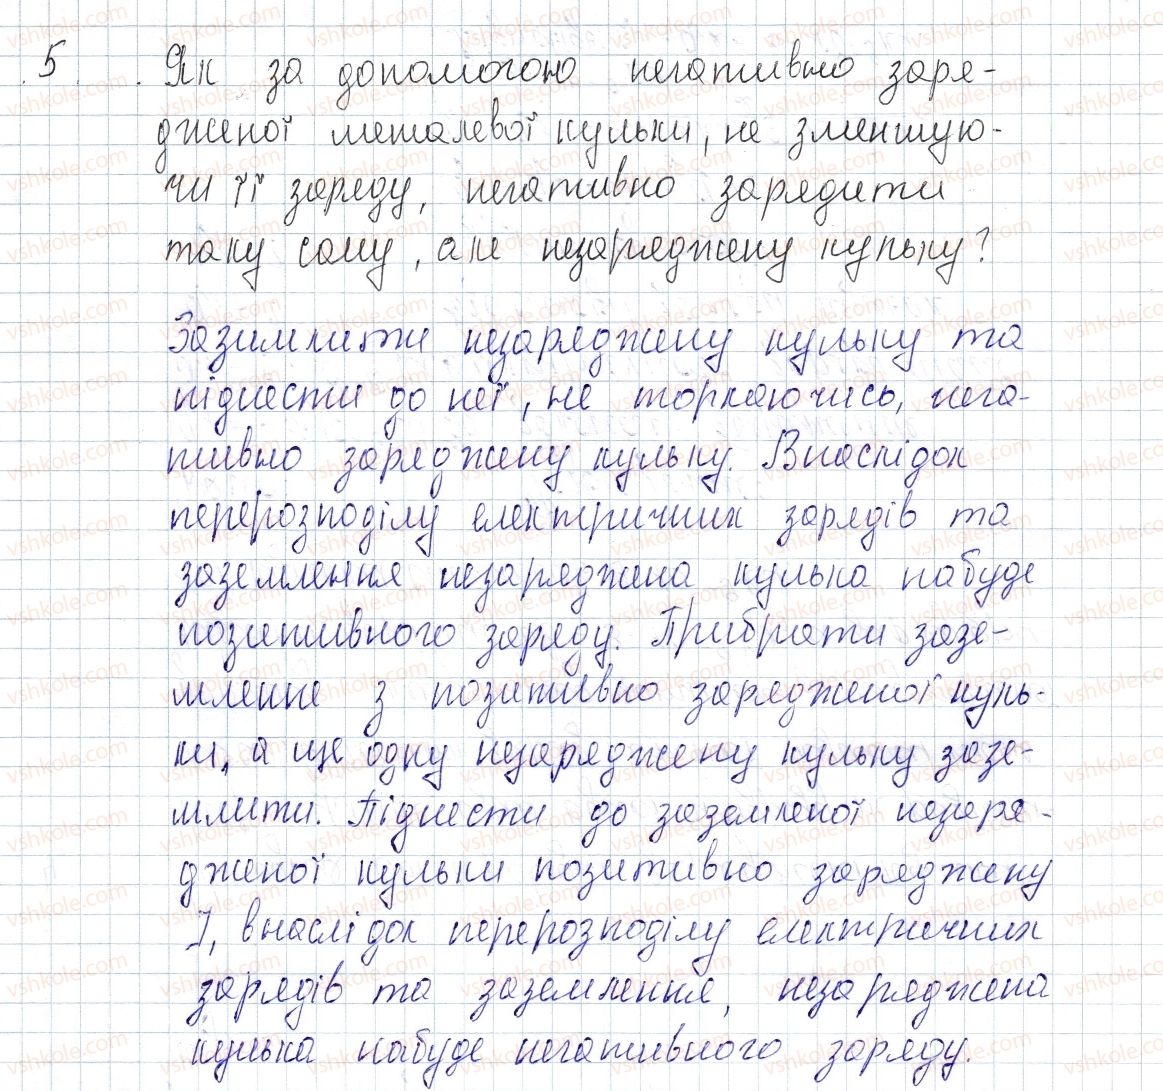 5. Як за допомогою негативно заря-
дженої металевої кульки, не зменшую-
чи її заряду, негативно зарядити
таку саму, але незаряджену кульку?
Заземлити незаряджену кульку та
піднести до неї, не торкаючись, нега-
тивно заряджену кульку. Внаслідок
перерозподілу електричних зарядів та
заземлення незаряджена кулька набуде
позитивного заряду. Прибрати зазе-
млення з позитивно зарядженої куль-
ки, а ще одну незаряджену кульку зазе-
млити. Піднести до заземленої незаря-
дженої кульки позитивно заряджену
І, внаслідок перерозподілу електричних
зарядів та заземлення, незаряджена
кулька набуде негативного заряду.